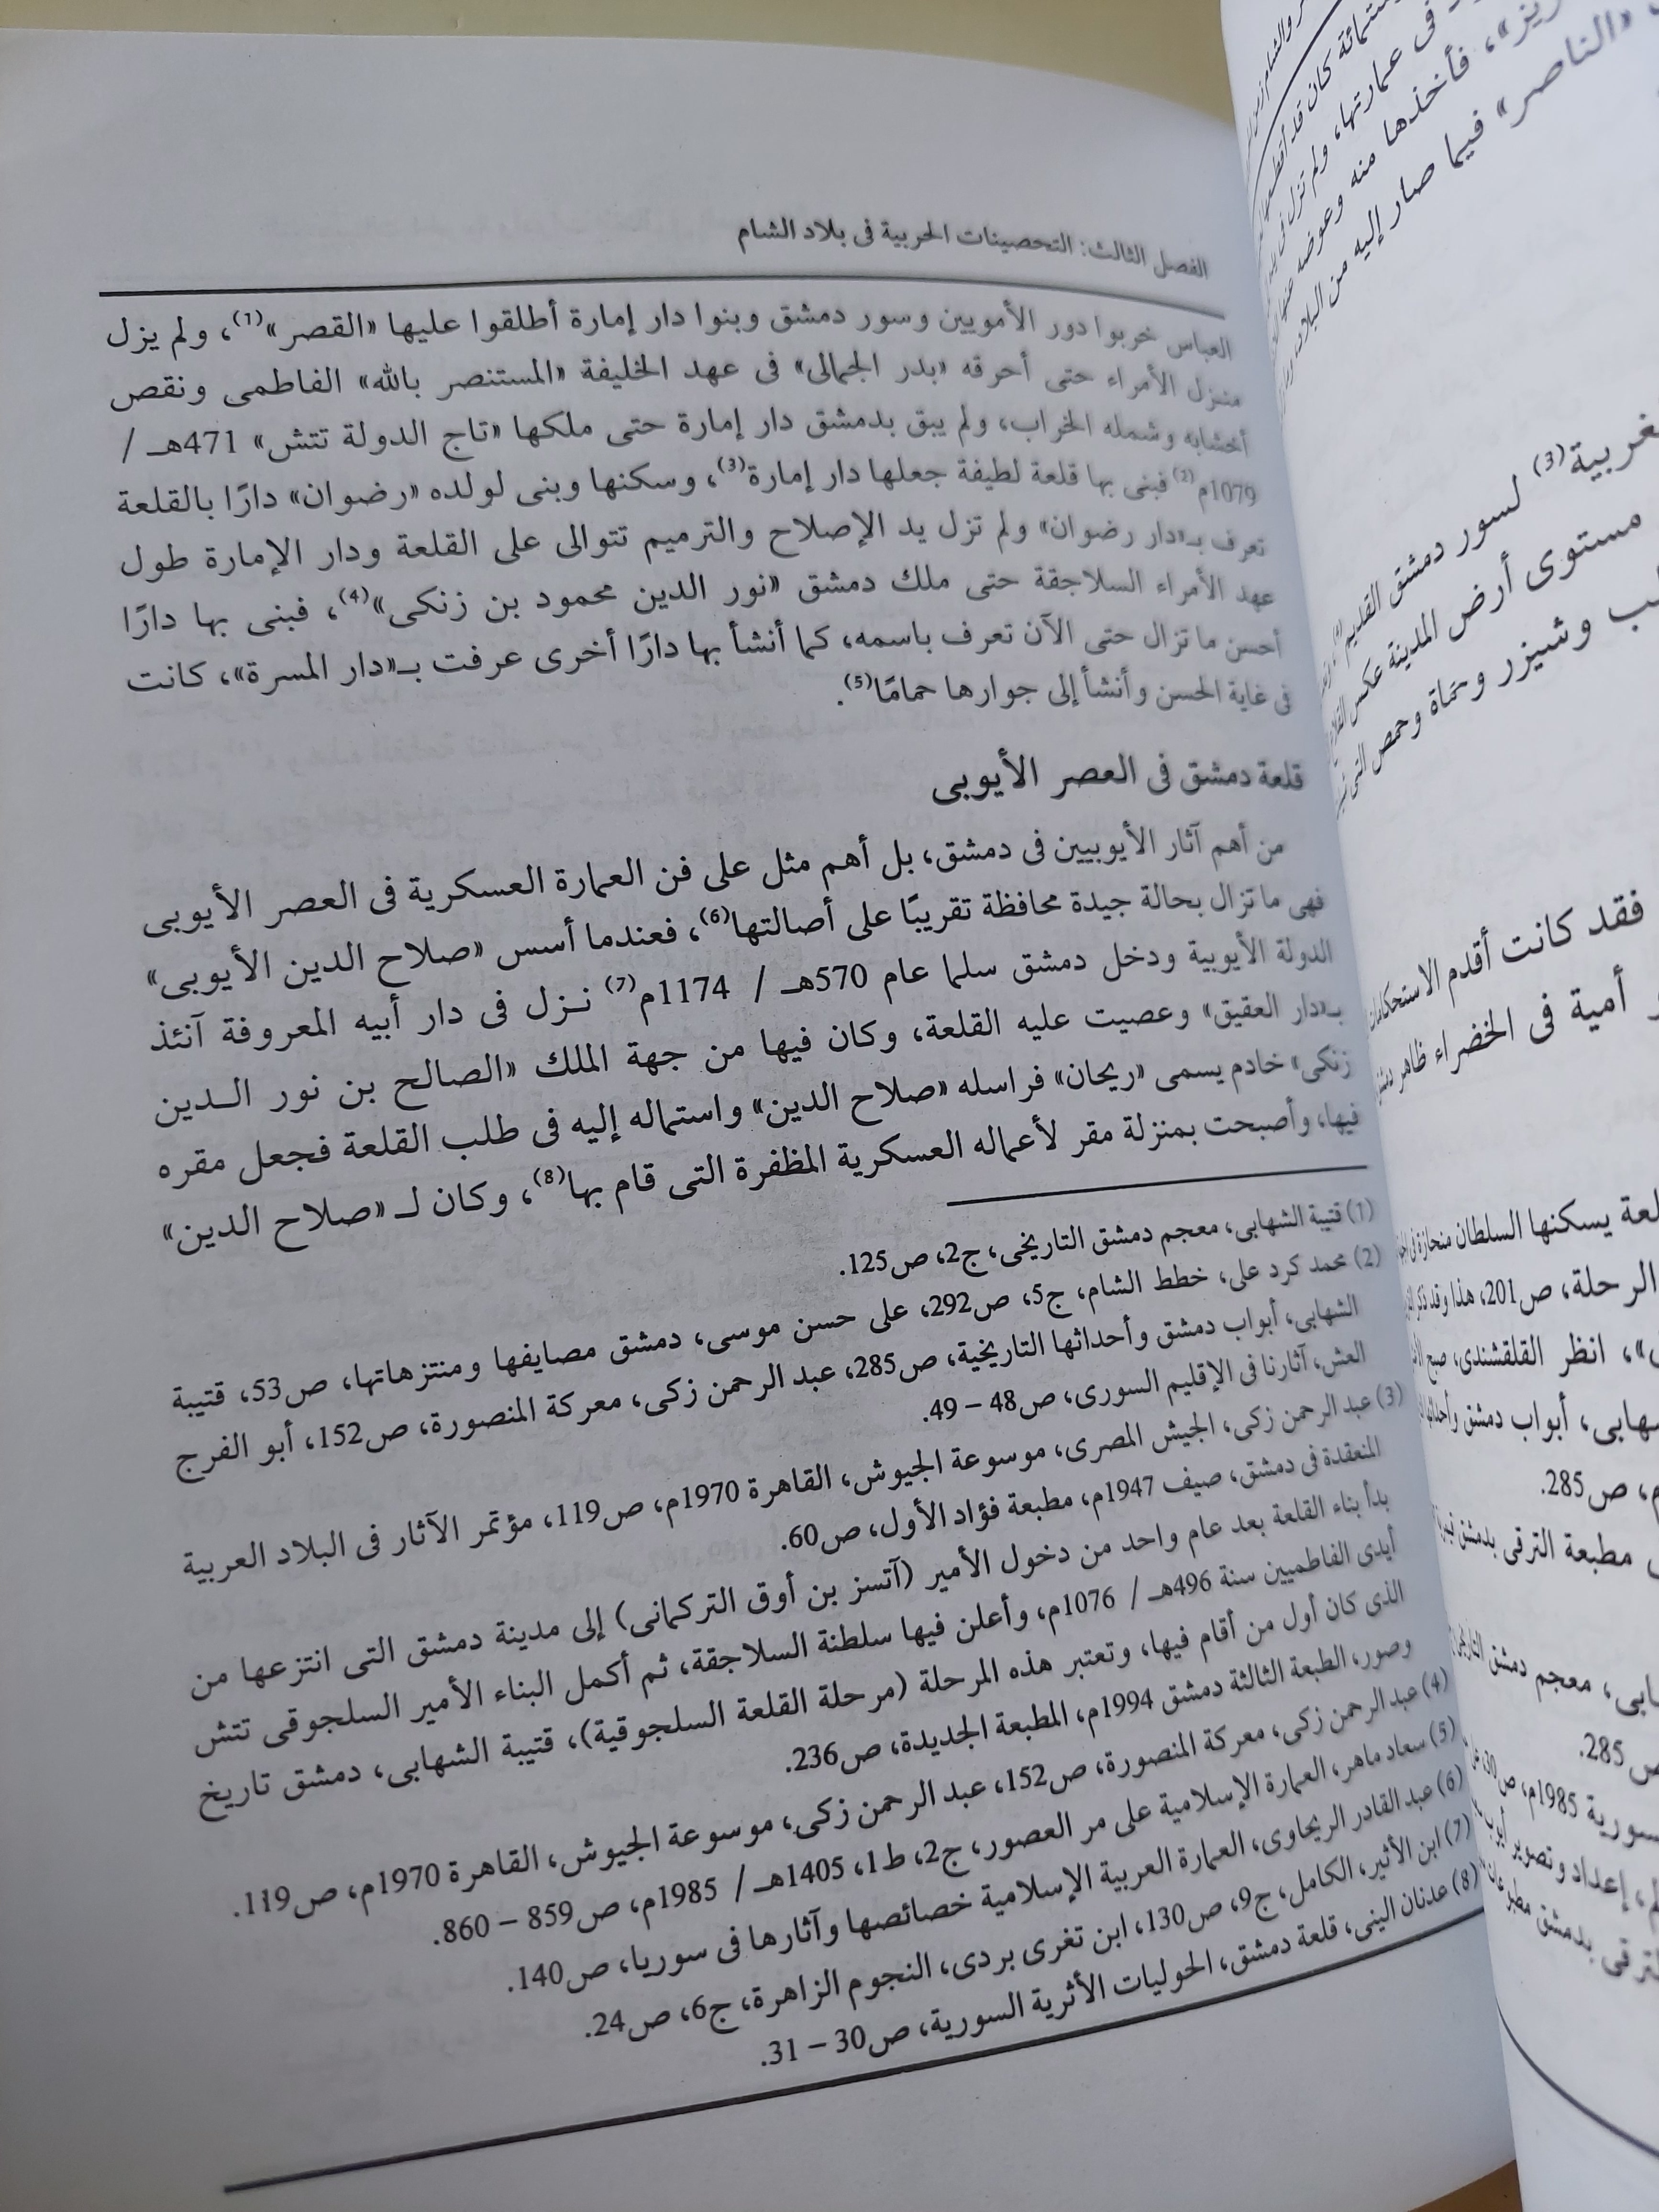 الفصل الثالث: التحصينات الحربية فى بلاد الشام
العباس خربوا دور الأمويين وسور دمشق وبنوا دار إمارة أطلقوا عليها «القصر»(1)، ولم يزل
منزل الأمراء حتى أحرقه «بدر الجمالى» فى عهد الخليفة «المستنصر بالله» الفاطمى ونقص
أخشابه وشمله الخراب، ولم يبق بدمشق دار إمارة حتى ملكها «تاج الدولة تتش» 471هـ /
1079م(2) فبنى بها قلعة لطيفة جعلها دار إمارة(3)، وسكنها وبنى لولده «رضوان» دارًا بالقلعة
تعرف بـ«دار رضوان» ولم تزل يد الإصلاح والترميم تتوالى على القلعة ودار الإمارة طول
عهد الأمراء السلاجقة حتى ملك دمشق «نور الدين محمود بن زنكى»(4)، فبنى بها دارًا
أحسن ما تزال حتى الآن تعرف باسمه، كما أنشأ بها دارًا أخرى عرفت بـ«دار المسرة»، كانت
فى غاية الحسن وأنشأ إلى جوارها حمامًا(5).
قلعة دمشق فى العصر الأيوبى
من أهم آثار الأيوبيين فى دمشق، بل أهم مثل على فن العمارة العسكرية فى العصر الأيوبى
فهى ما تزال بحالة جيدة محافظة تقريبًا على أصالتها(6)، فعندما أسس «صلاح الدين الأيوبى»
الدولة الأيوبية ودخل دمشق سلما عام 570هـ / 1174م(7) نـزل فى دار أبيه المعروفة آنئذ
بـ«دار العقيق» وعصيت عليه القلعة، وكان فيها من جهة الملك «الصالح بن نور الـدين
زنكى» خادم يسمى «ريحان» فراسله «صلاح الدين» واستماله إليه فى طلب القلعة فجعل مقره
فيها، وأصبحت بمنزلة مقر لأعماله العسكرية المظفرة التى قام بها(8)، وكان لـ «صلاح الدين»
(1) قتيبة الشهابى، معجم دمشق التاريخى، ج2، ص125.
(2) محمد كرد على، خطط الشام، ج5، ص292، على حسن موسى، دمشق مصايفها ومنتزهاتها، ص53، قتيبة
الشهابى، أبواب دمشق وأحداثها التاريخية، ص285، عبد الرحمن زكى، معركة المنصورة، ص152، أبو الفرج
العش، آثارنا فى الإقليم السورى، ص48 – 49.
(3) عبد الرحمن زكى، الجيش المصرى، موسوعة الجيوش، القاهرة 1970م، ص119، مؤتمر الآثار فى البلاد العربية
المنعقدة فى دمشق، صيف 1947م، مطبعة فؤاد الأول، ص60.
بدأ بناء القلعة بعد عام واحد من دخول الأمير (آتسز بن أوق التركمانى) إلى مدينة دمشق التى انتزعها من
أيدى الفاطميين سنة 496هـ / 1076م، وأعلن فيها سلطنة السلاجقة، ثم أكمل البناء الأمير السلجوقى تتش
الذى كان أول من أقام فيها، وتعتبر هذه المرحلة (مرحلة القلعة السلجوقية)، قتيبة الشهابى، دمشق تاريخ
وصور، الطبعة الثالثة دمشق 1994م، المطبعة الجديدة، ص236.
(4) عبد الرحمن زكى، معركة المنصورة، ص152، عبد الرحمن زكى، موسوعة الجيوش، القاهرة 1970م، ص119.
(5) سعاد ماهر، العمارة الإسلامية على مر العصور، ج2، ط1، 1405هـ / 1985م، ص859 – 860.
(6) عبد القادر الريحاوى، العمارة العربية الإسلامية خصائصها وآثارها فى سوريا، ص140.
(7) ابن الأثير، الكامل، ج9، ص130، ابن تغرى بردى، النجوم الزاهرة، ج6، ص24.
(8) عدنان البنى، قلعة دمشق، الحوليات الأثرية السورية، ص30 – 31.
فى عمارتها، ولم تزل فى
فأخذها منه وعوضه عنها
«الناصر» فيما صار إليه من البلاد
غربية(3) لسور دمشق القديم
مستوى أرض المدينة عكس
وشيزر وحماة وحمص التى
فقد كانت أقدم الاستحكامات
أمية فى الخضراء ظاهر دمشق
يسكنها السلطان منحازة
الرحلة، ص201، هذا وقد ذكر
انظر القلقشندى، صبح
أبواب دمشق
ص285.
مطبعة الترقى بدمشق
معجم دمشق
ص285.
1985م، ص30
إعداد وتصوير
بدمشق